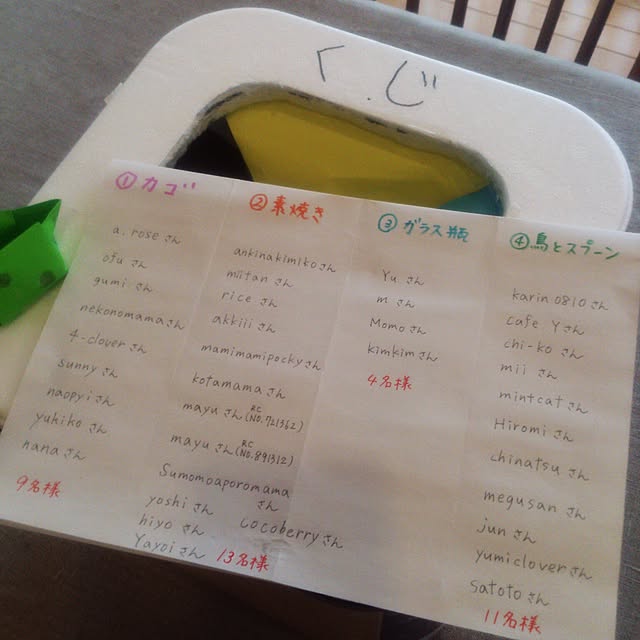 くじ
①カゴ
a. roseさん
ofuさん
gumiさん
nekonomamaさん
4-cloverさん
sunnyさん
naopyiさん
yuhikoさん
hanaさん
9名様
②素焼き
ankinakimikoさん
miitanさん
riceさん
akkiiiさん
mamimamipockyさん
kotamamaさん
mayuさん(RC NO.721362)
mayuさん(RC NO.891312)
Sumomoaporomama
さん
yoshiさん
cocoberryさん
hiyoさん
Yayoiさん
13名様
③ガラス瓶
Yu.さん
mさん
Momoさん
kimkimさん
4名様
④鳥とスプーン
karin0810さん
cafe Yさん
chi-koさん
miiさん
mintcatさん
Hiromiさん
chinatsuさん
megusanさん
junさん
yumicloverさん
satotoさん
11名様